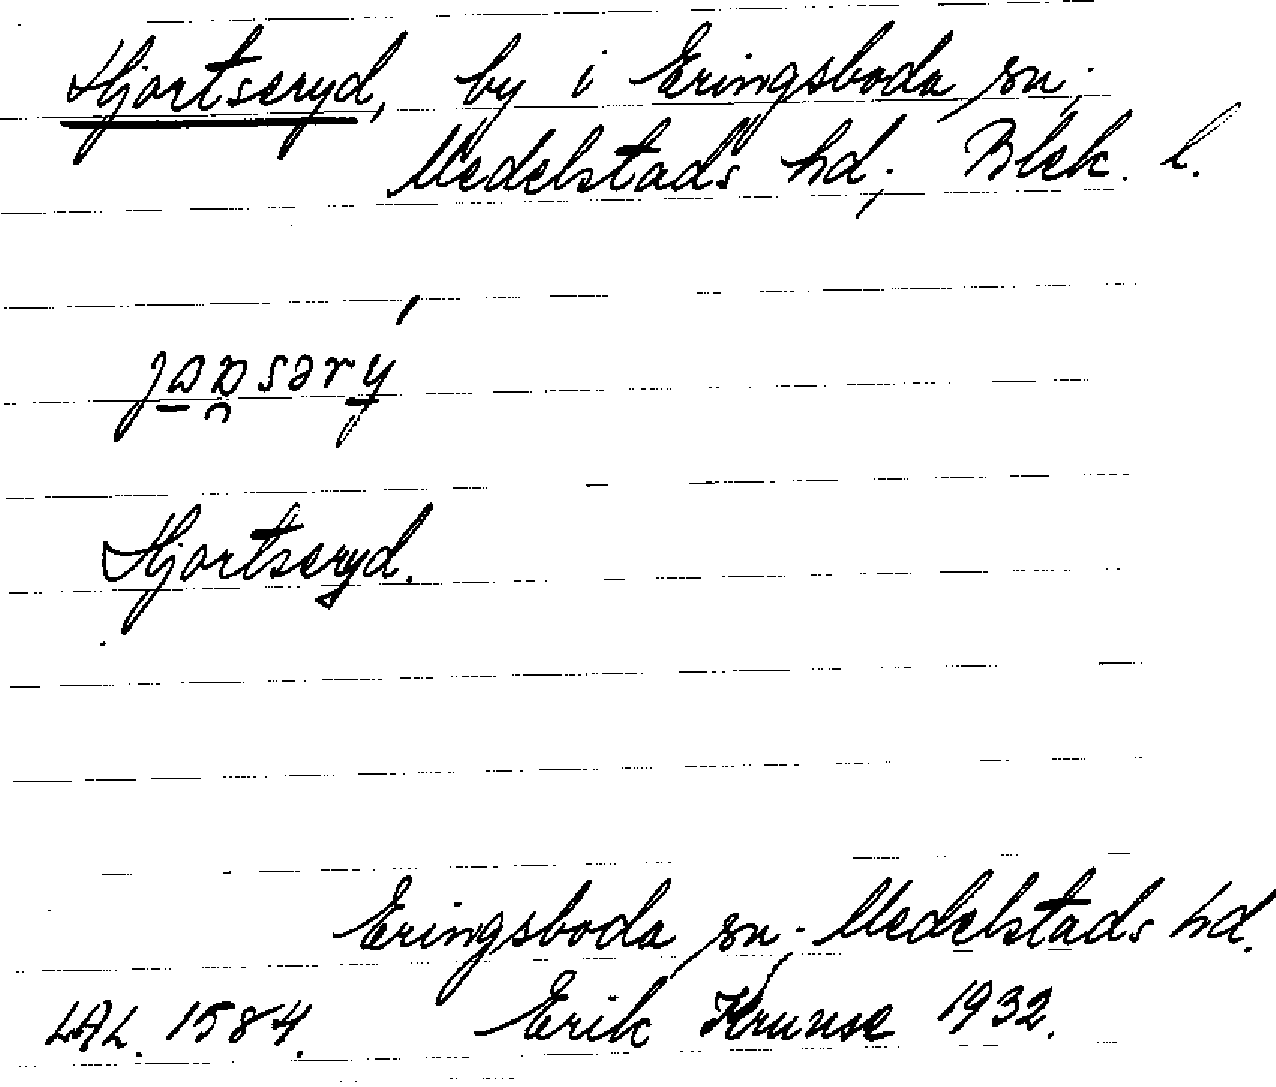 Hjortseryd, by i Eringsboda sn.
Medelstads hd. Blek. l.
Hjortseryd.
Eringsboda sn. Medelstads hd.
LAL. 1584. Erik Kruuse 1932.